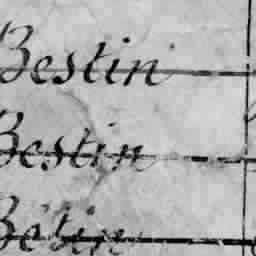 Bestin
Bestin
Betin